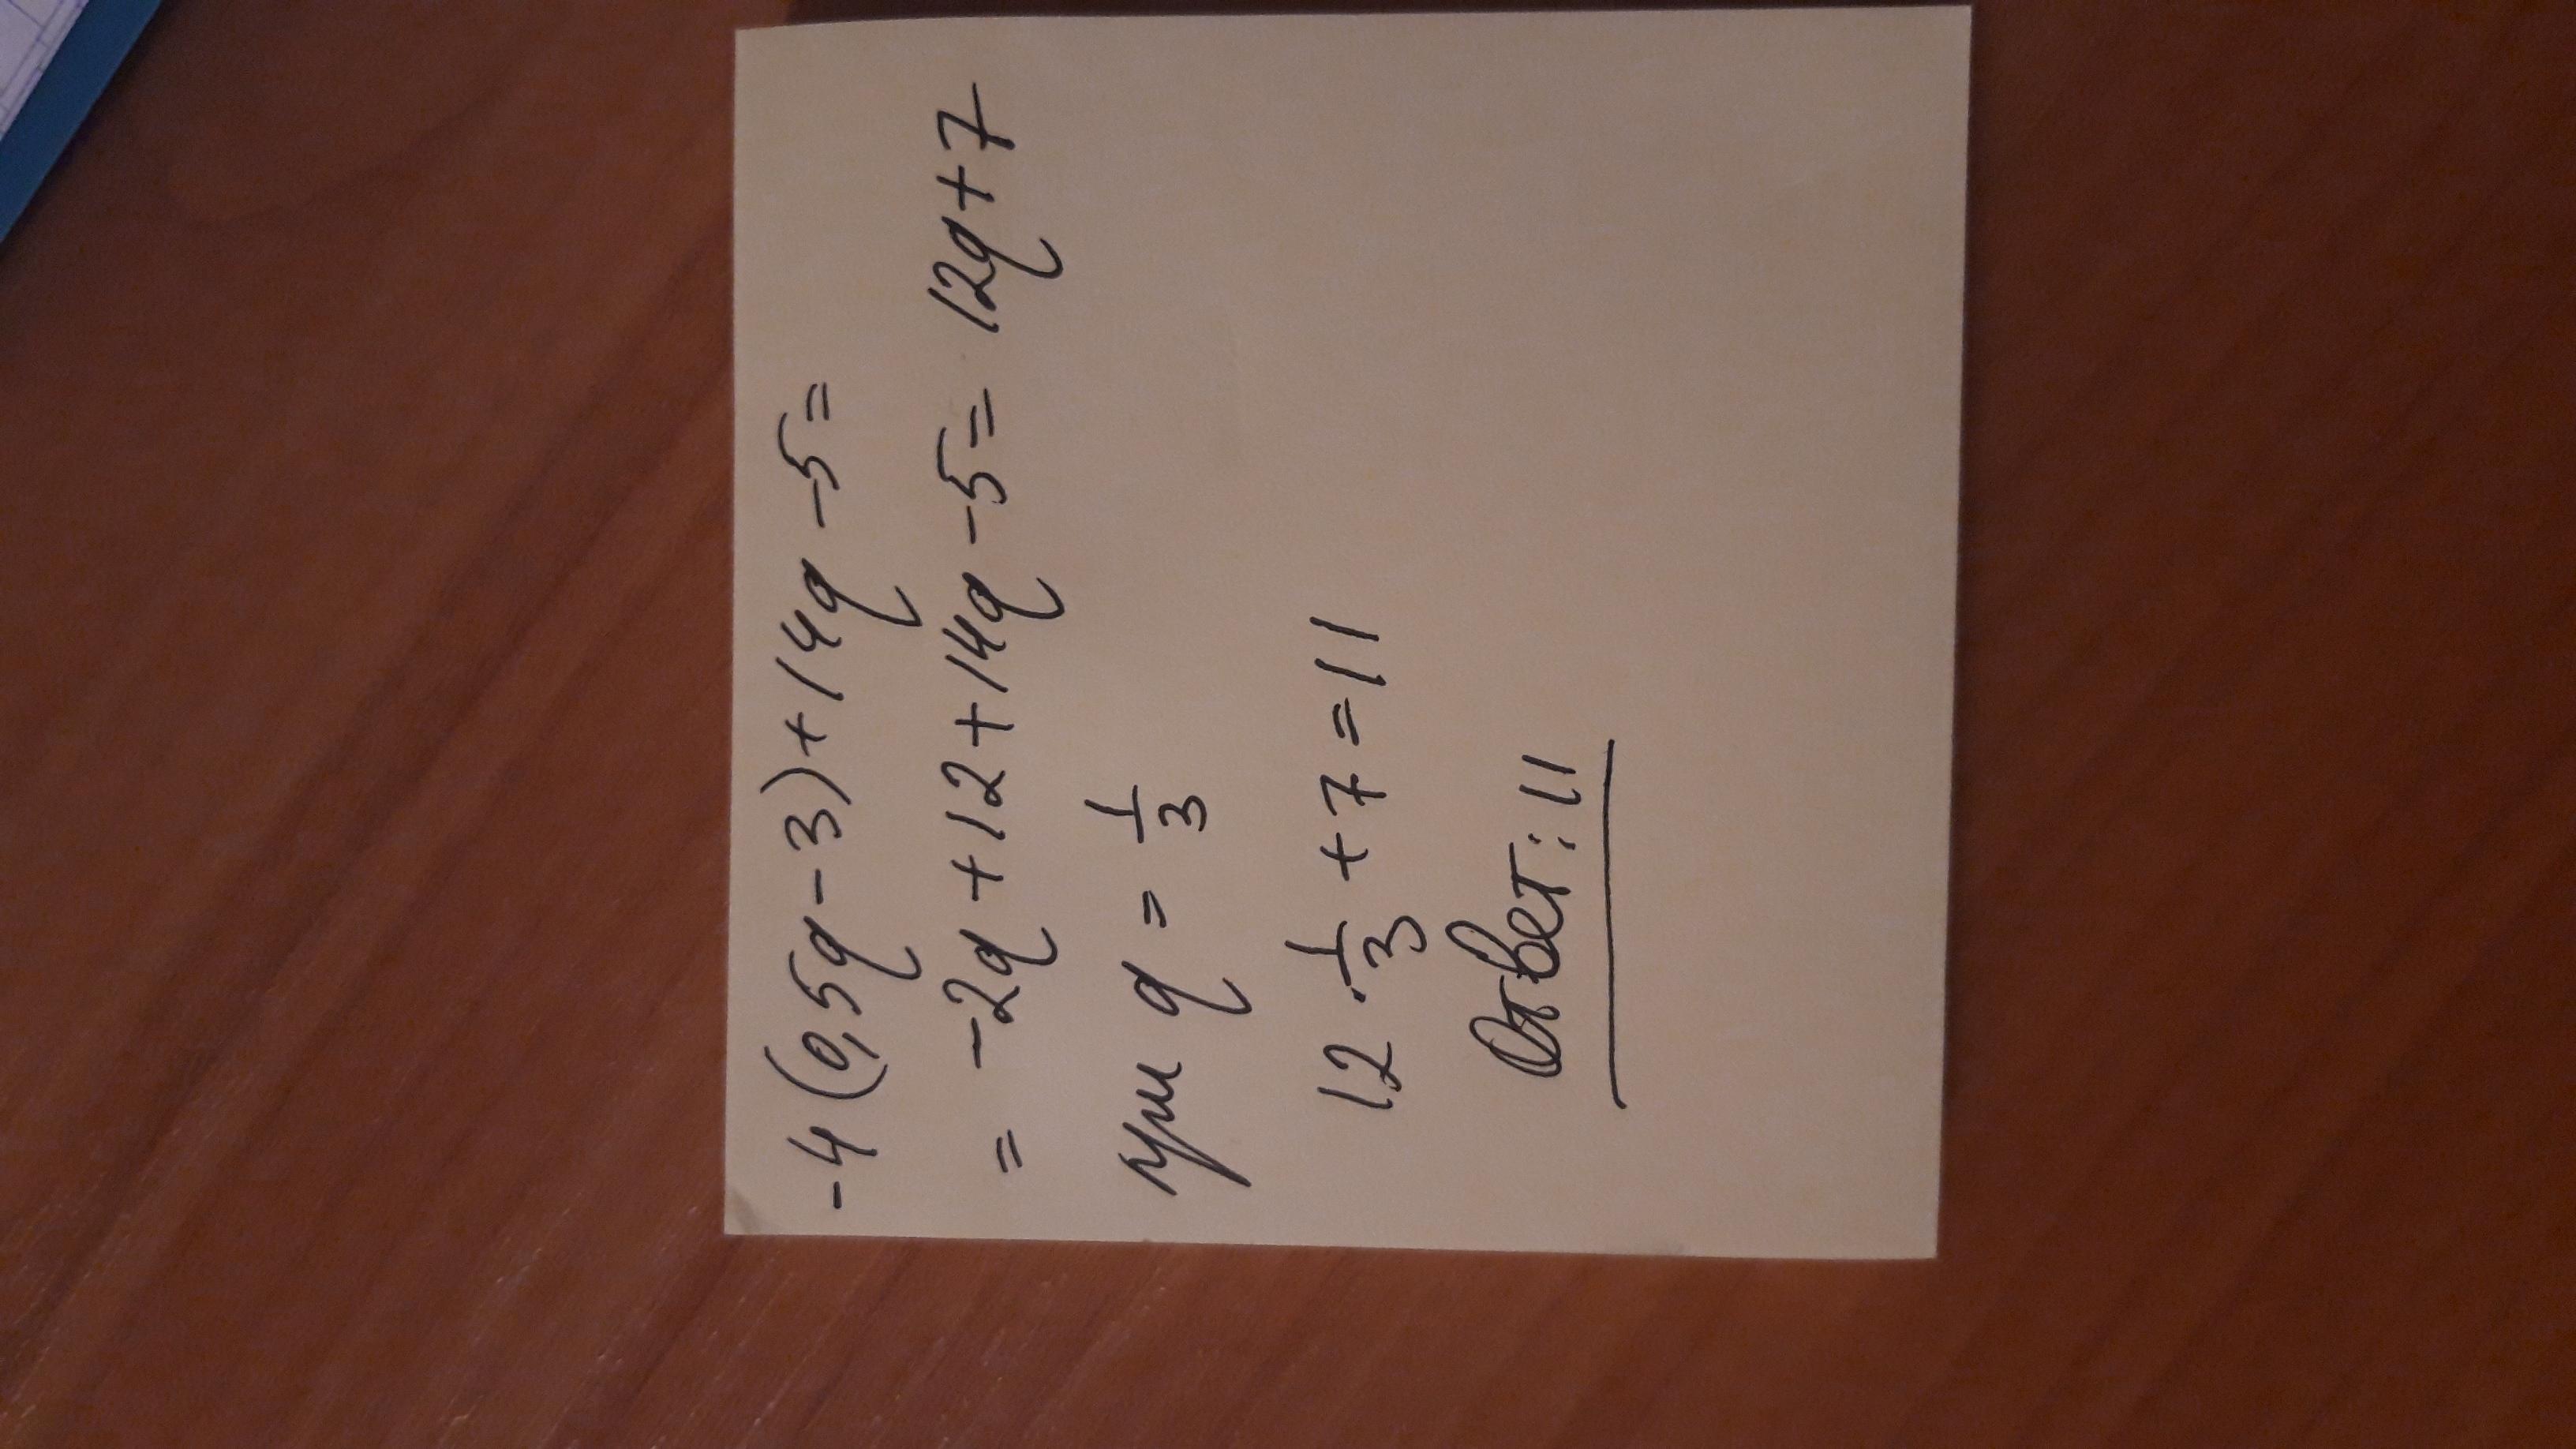 -4(0,5q-3)+14q-5=
= -2q+12+14q-5= 12q+7
при q = 1/3
12 · 1/3 + 7 = 11
Ответ: 11